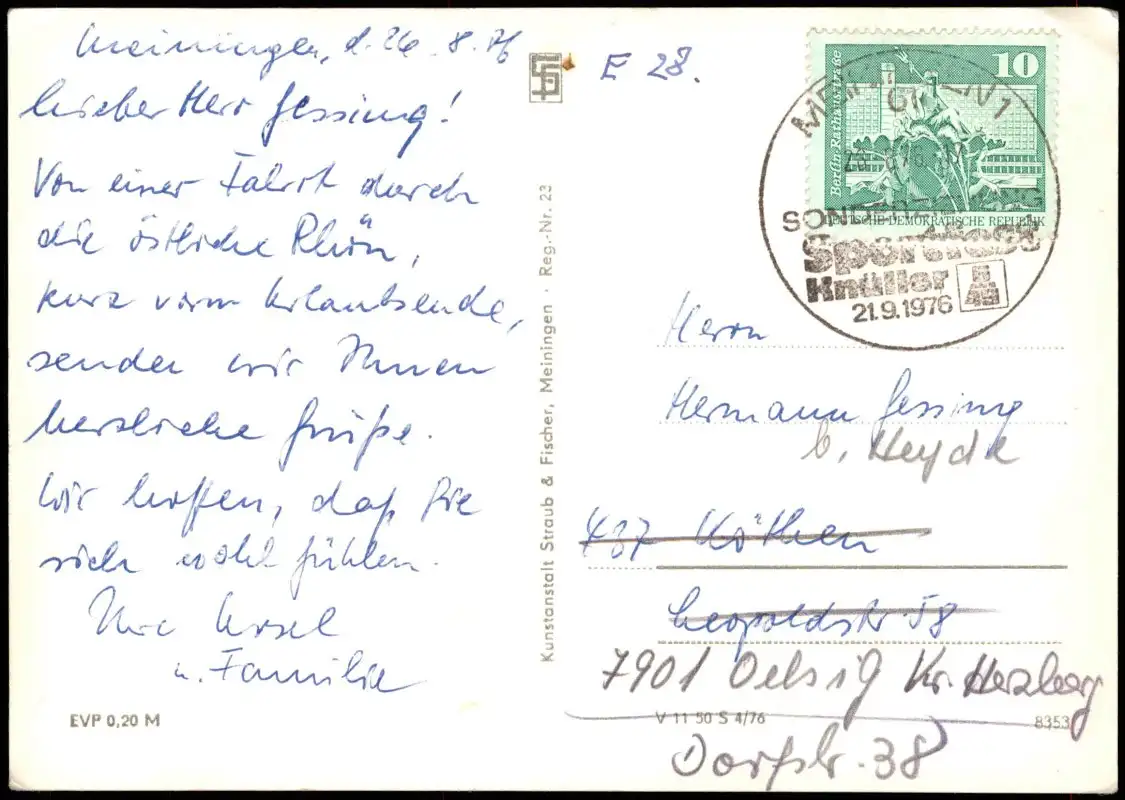 Meiningen, d. 26.8.76
Lieber Herr Gessing!
Von einer Fahrt durch
die östliche Rhön,
kurz vorm Urlaubsende,
senden wir Ihnen
herzliche Grüße.
Wir hoffen, daß Sie
sich wohl fühlen.
Ihre Ursel
u. Familie
EVP 0,20 M
Kunstanstalt Straub & Fischer, Meiningen · Reg.-Nr. 23
E 28.
10
Berlin-Rathausstraße
DEUTSCHE DEMOKRATISCHE REPUBLIK
MEININGEN 1
Sportfest
Knüller
21.9.1976
Herrn
Hermann Gessing
b. Heyde
437 Köthen
Leopoldstr 58
7901 Oelsig Kr. Herzberg
V 11 50 S 4/76
8353
Dorfstr. 38